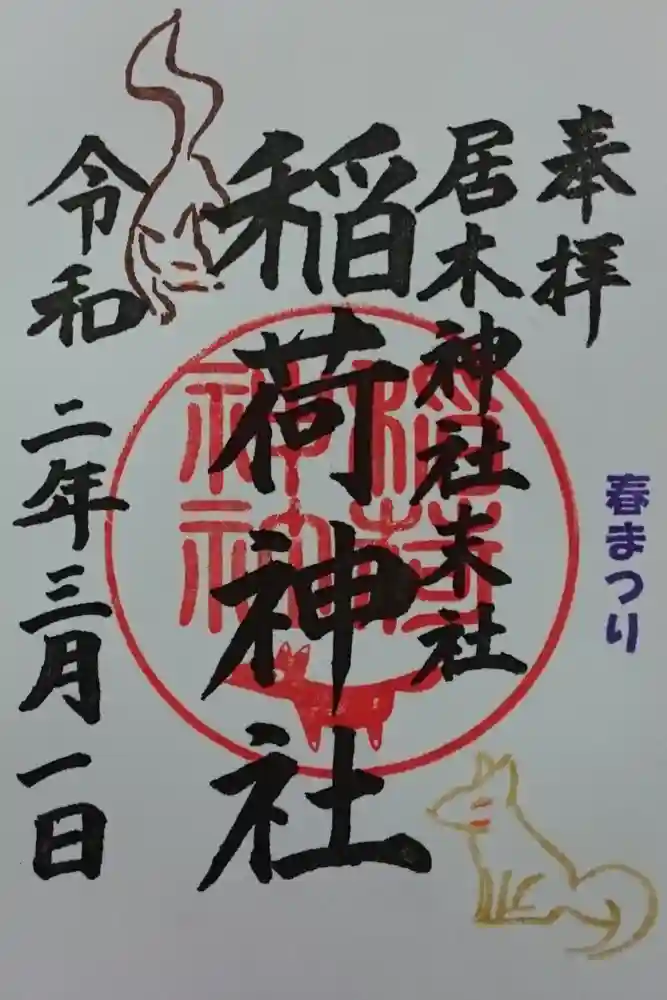 奉拝
春まつり
居木神社末社
稲荷神社
令和二年三月一日